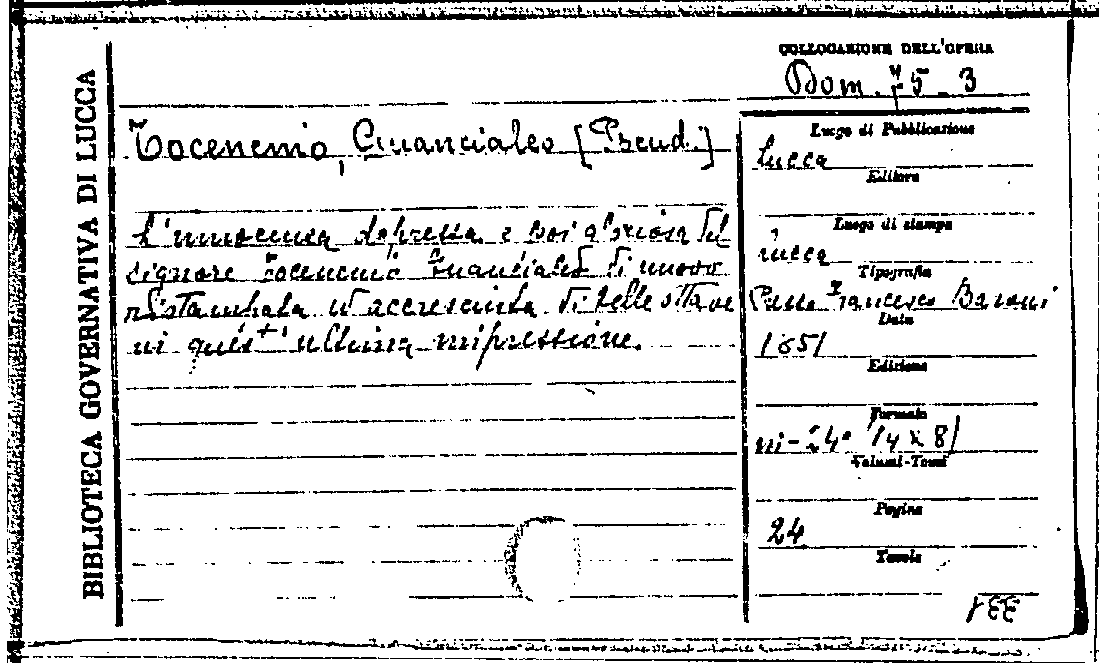 BIBLIOTECA GOVERNATIVA DI LUCCA
COLLOCAZIONE DELL'OPERA
Dom. 75-3
Tocenenio, Cuanciales [Pseud.]
L'innocenza depressa e poi gloriosa del
signore Tocenenio Cuanciales di nuovo
ristampata ed accresciuta di belle ottave
in quest'ultima impressione.
Luogo di Pubblicazione
Lucca
Editore
Luogo di stampa
Lucca
Tipografia
Presso Francesco Baroni
Data
1851
Edizione
Formato
in-24° 14x8
Volumi-Tomi
Pagine
24
Tavole